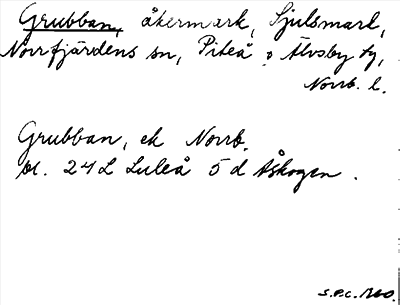 Grubban, åkermark, Sjulsmark,
Norrfjärdens sn, Piteå o Älvsby tg,
Norrb. l.
Grubban, ek Norrb.
bl. 24L Luleå 5 d Åskogen.
S.P.C. 1960.